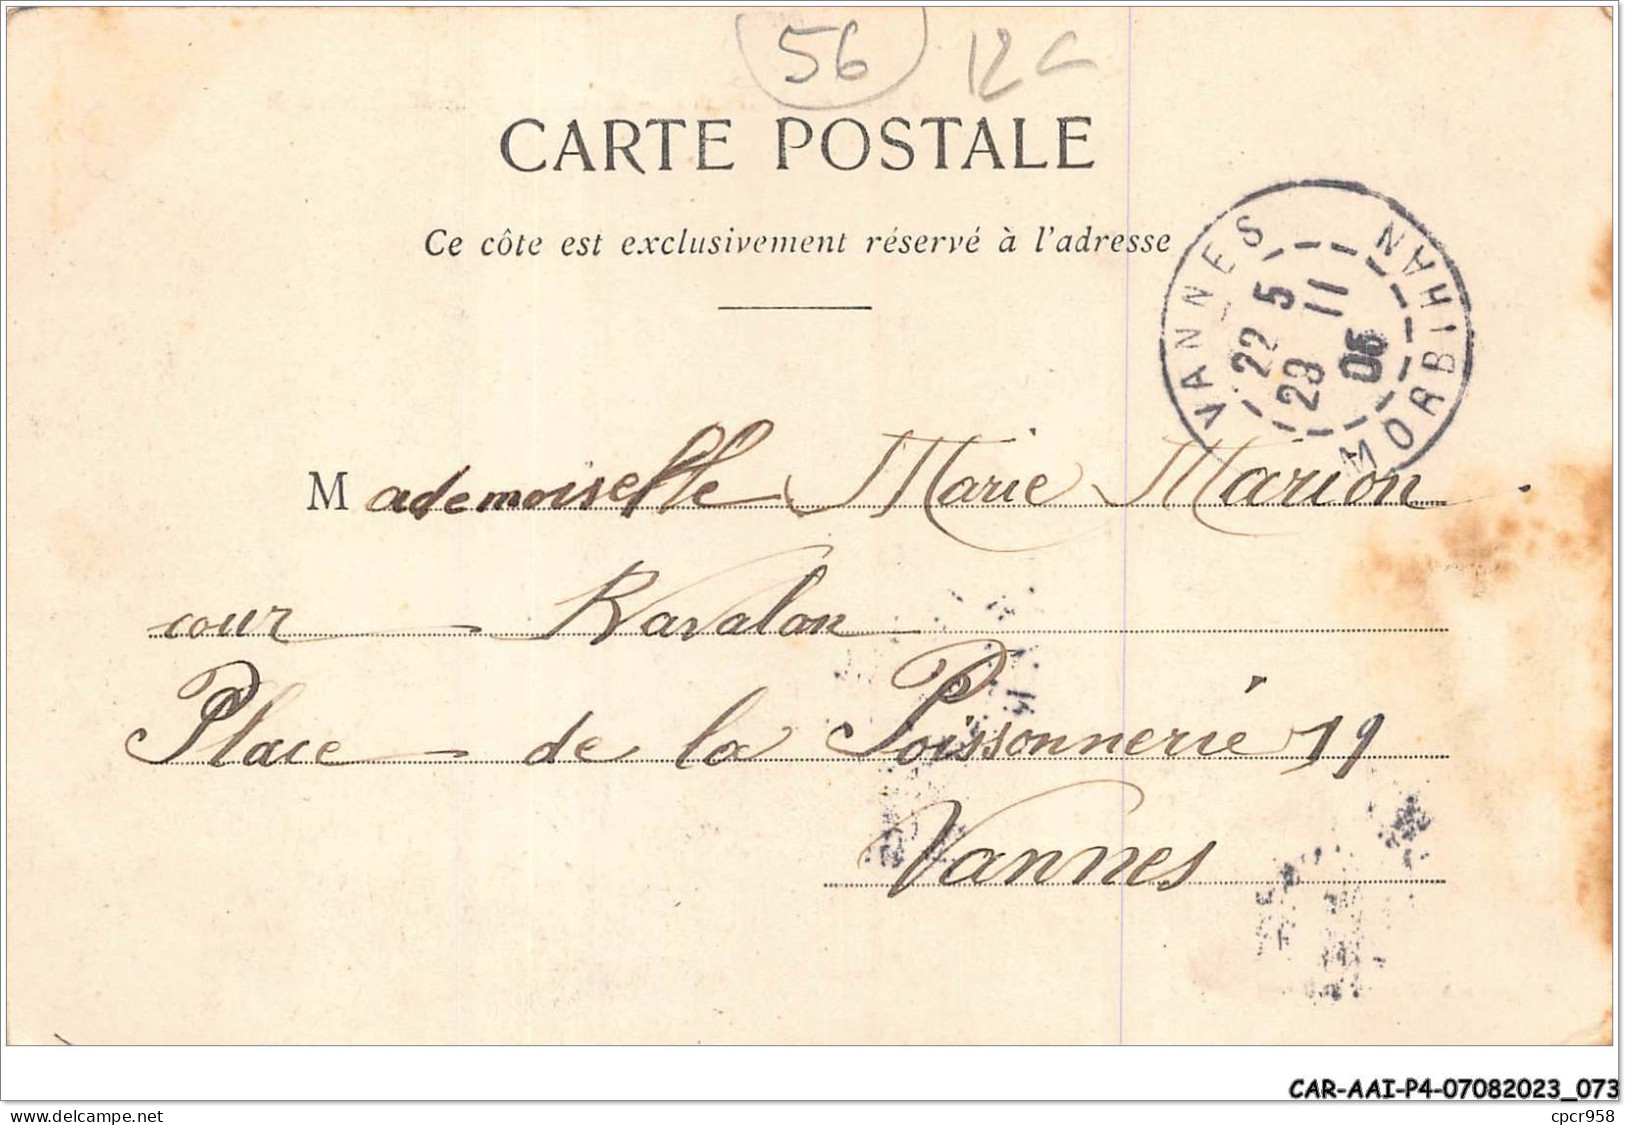 56 12
CARTE POSTALE
Ce côte est exclusivement réservé à l'adresse
VANNES MORBIHAN
22 5
23 11
05
Mademoiselle Marie Marion
cour Ravalan
Place de la Poissonnerie 19
Vannes
CAR-AAI-P4-07082023_073
cpcr958